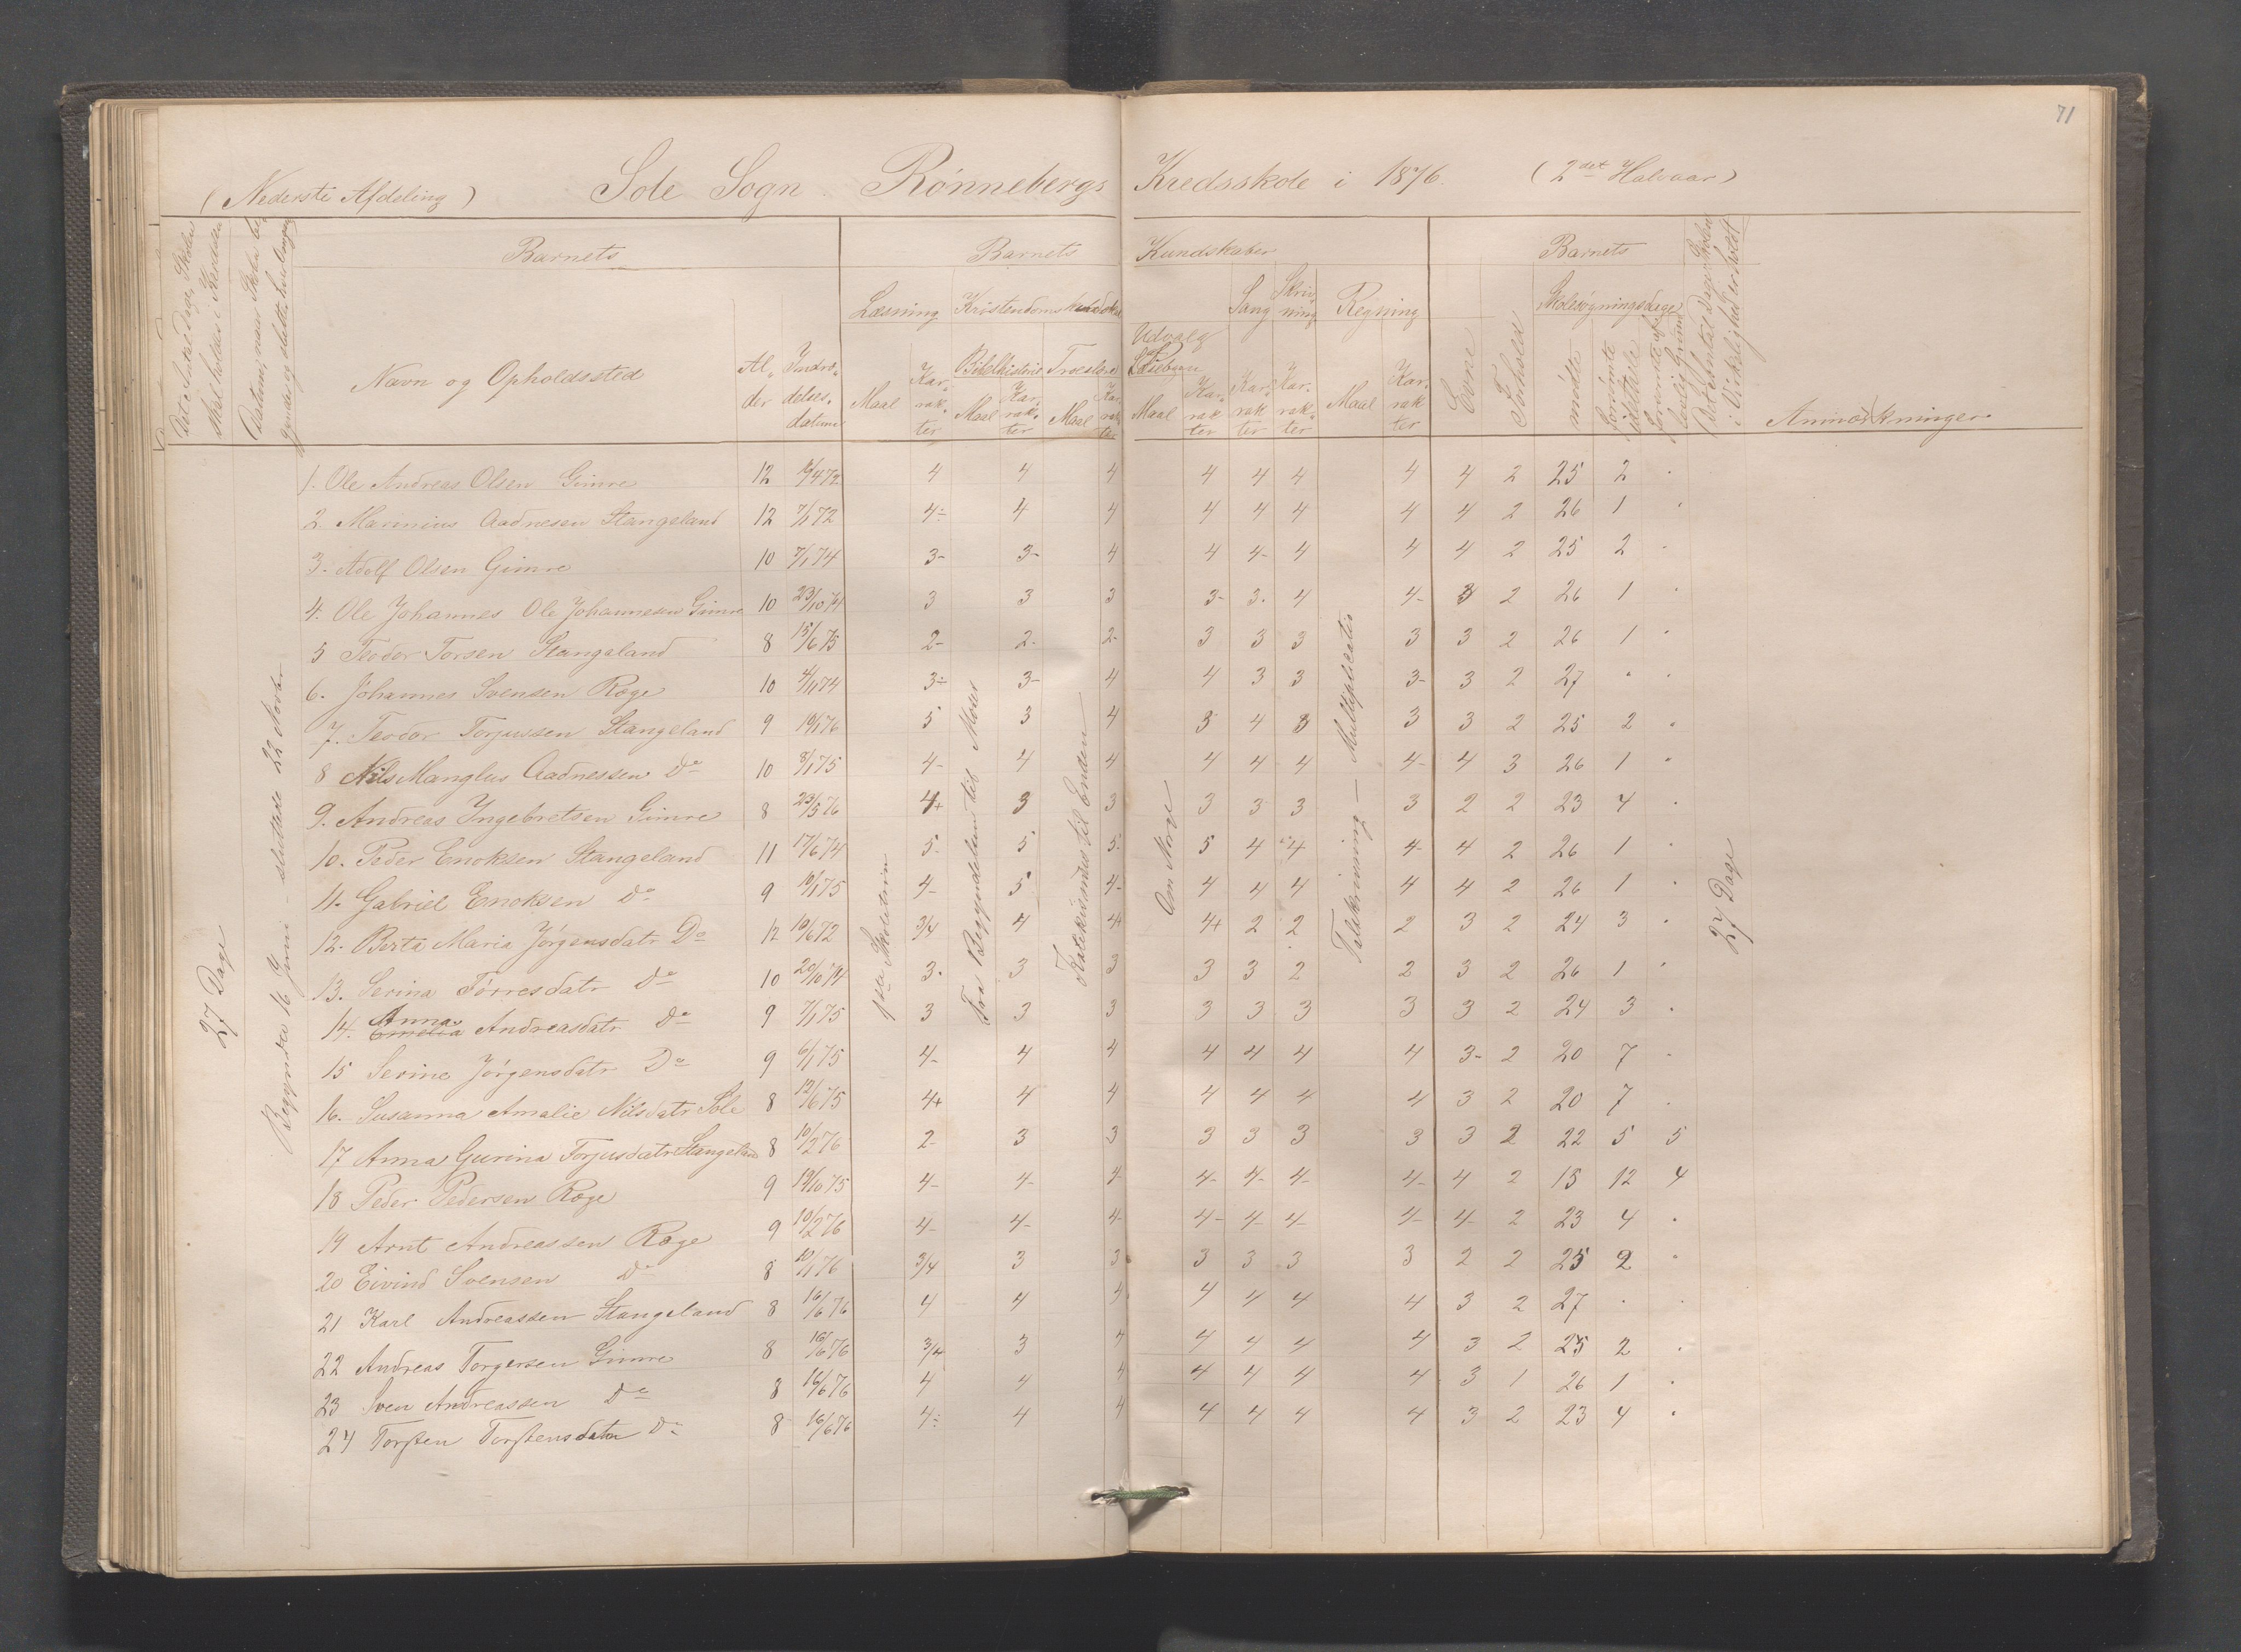 71
(Nederste Afdeling) Sole Sogn Rönnebergs Kredsskole i 1876. (2det Halvaar)
Det Antal Dage, Skolen skal holdes i Kredsen
Datum, naar Skolen begyndes og slutter hver Omgang
Barnets Barnets Kundskaber Barnets
Navn og Opholdssted
Alder
Indtrædelsesdatum
Læsning Kristendomskundskab Sang Skrivning Regning
Udvalg af Læsebogen
Bibelhistorie Troeslære
Maal Karakter Maal Karakter Maal Karakter Maal Karakter Karakter Karakter Maal Karakter
Evne
Forhold
Skolesøgningsdage
mødte
forsømte i det Hele
forsømte af lovlig Grund
Det Antal Dage Skolen i Virkeligheden er holdt
Anmærkninger
27 Dage
Begyndte 16 Juni - sluttede 23 Novbr
1ste Skoletrin
Fra Begyndelsen til Moses
Katekismus til Enden
Om Norge
Talskrivning - Multiplication
27 Dage
1. Ole Andreas Olsen Gimre 12 16/4 72 4 4 4 4 4 4 4 4 2 25 2 "
2. Marinius Aadnesen Stangeland 12 7/1 72 4÷ 4 4 4 4 4 4 4 2 26 1 "
3. Adolf Olsen Gimre 10 7/1 74 3- 3- 4 4 4- 4 4 4 2 25 2 "
4. Ole Johannes Ole Johannesen Gimre 10 23/10 74 3 3 3 3- 3. 4 4- 3 2 26 1 "
5 Teodor Torsen Stangeland 8 15/6 75 2- 2- 2- 3 3 3 3 3 2 26 1 "
6. Johannes Svensen Ræge 10 4/11 74 3÷ 3- 4 4 3 3 3- 3 2 27 " "
7. Teodor Torjussen Stangeland 9 10/1 76 5 3 4 3 4 3 3 3 2 25 2 "
8 Nils Manglus Aadnessen Do 10 8/1 75 4- 4 4 4 4 4 4- 4 3 26 1 "
9. Andreas Ingebretsen Gimre 8 23/5 76 4+ 3 3 3 3 3 3 2 2 23 4 "
10. Peder Enoksen Stangeland 11 17/6 74 5- 5 5 5 4 4 4- 4 2 26 1 "
11. Gabriel Enoksen Do 9 10/1 75 4- 5 4- 4 4 4 4 4 2 26 1 "
12. Berta Maria Jørgensdatr Do 12 10/6 72 3/4 4 4 4+ 2 2 2 3 2 24 3 "
13. Serina Törresdatr Do 10 20/10 74 3. 3 3 3 3 2 2 3 2 26 1 "
14. Anna Andreasdatr Do 9 7/1 75 3 3 3 3 3 3 3 3 2 24 3 "
15 Serine Jørgensdatr Do 9 6/1 75 4- 4 4 4 4 4 4 3- 2 20 7 "
16. Susanna Amalie Nilsdatr Sole 8 12/6 75 4+ 4 4 4 4 4 4 3 2 20 7 "
17 Anna Gurina Torjusdatr Stangeland 8 10/2 76 2- 3 3 3 3 3 3 3 2 22 5 5
18 Peder Pedersen Ræge 9 12/10 75 4- 4- 4- 4- 4- 4- 4- 4 2 15 12 4
19 Arnt Andreassen Ræge 9 10/2 76 4- 4- 4- 4- 4- 4- 4- 4- 2 23 4 "
20 Eivind Svensen Do 8 10/1 76 3/4 3 3 3 3 3 3 2 2 25 2 "
21 Karl Andreassen Stangeland 8 16/6 76 4 4 4 4 4 4 4 3 2 27 " "
22 Andreas Torgersen Gimre 8 16/6 76 3/4 3 4 4 4 4 4 3 2 25 2 "
23 Sven Andreassen Do 8 16/6 76 4 4 4 4 4 4 4 3 1 26 1 "
24 Torsten Torstensdatr Do 8 16/6 76 4÷ 4 4 4 4 4 4 3 2 23 4 "